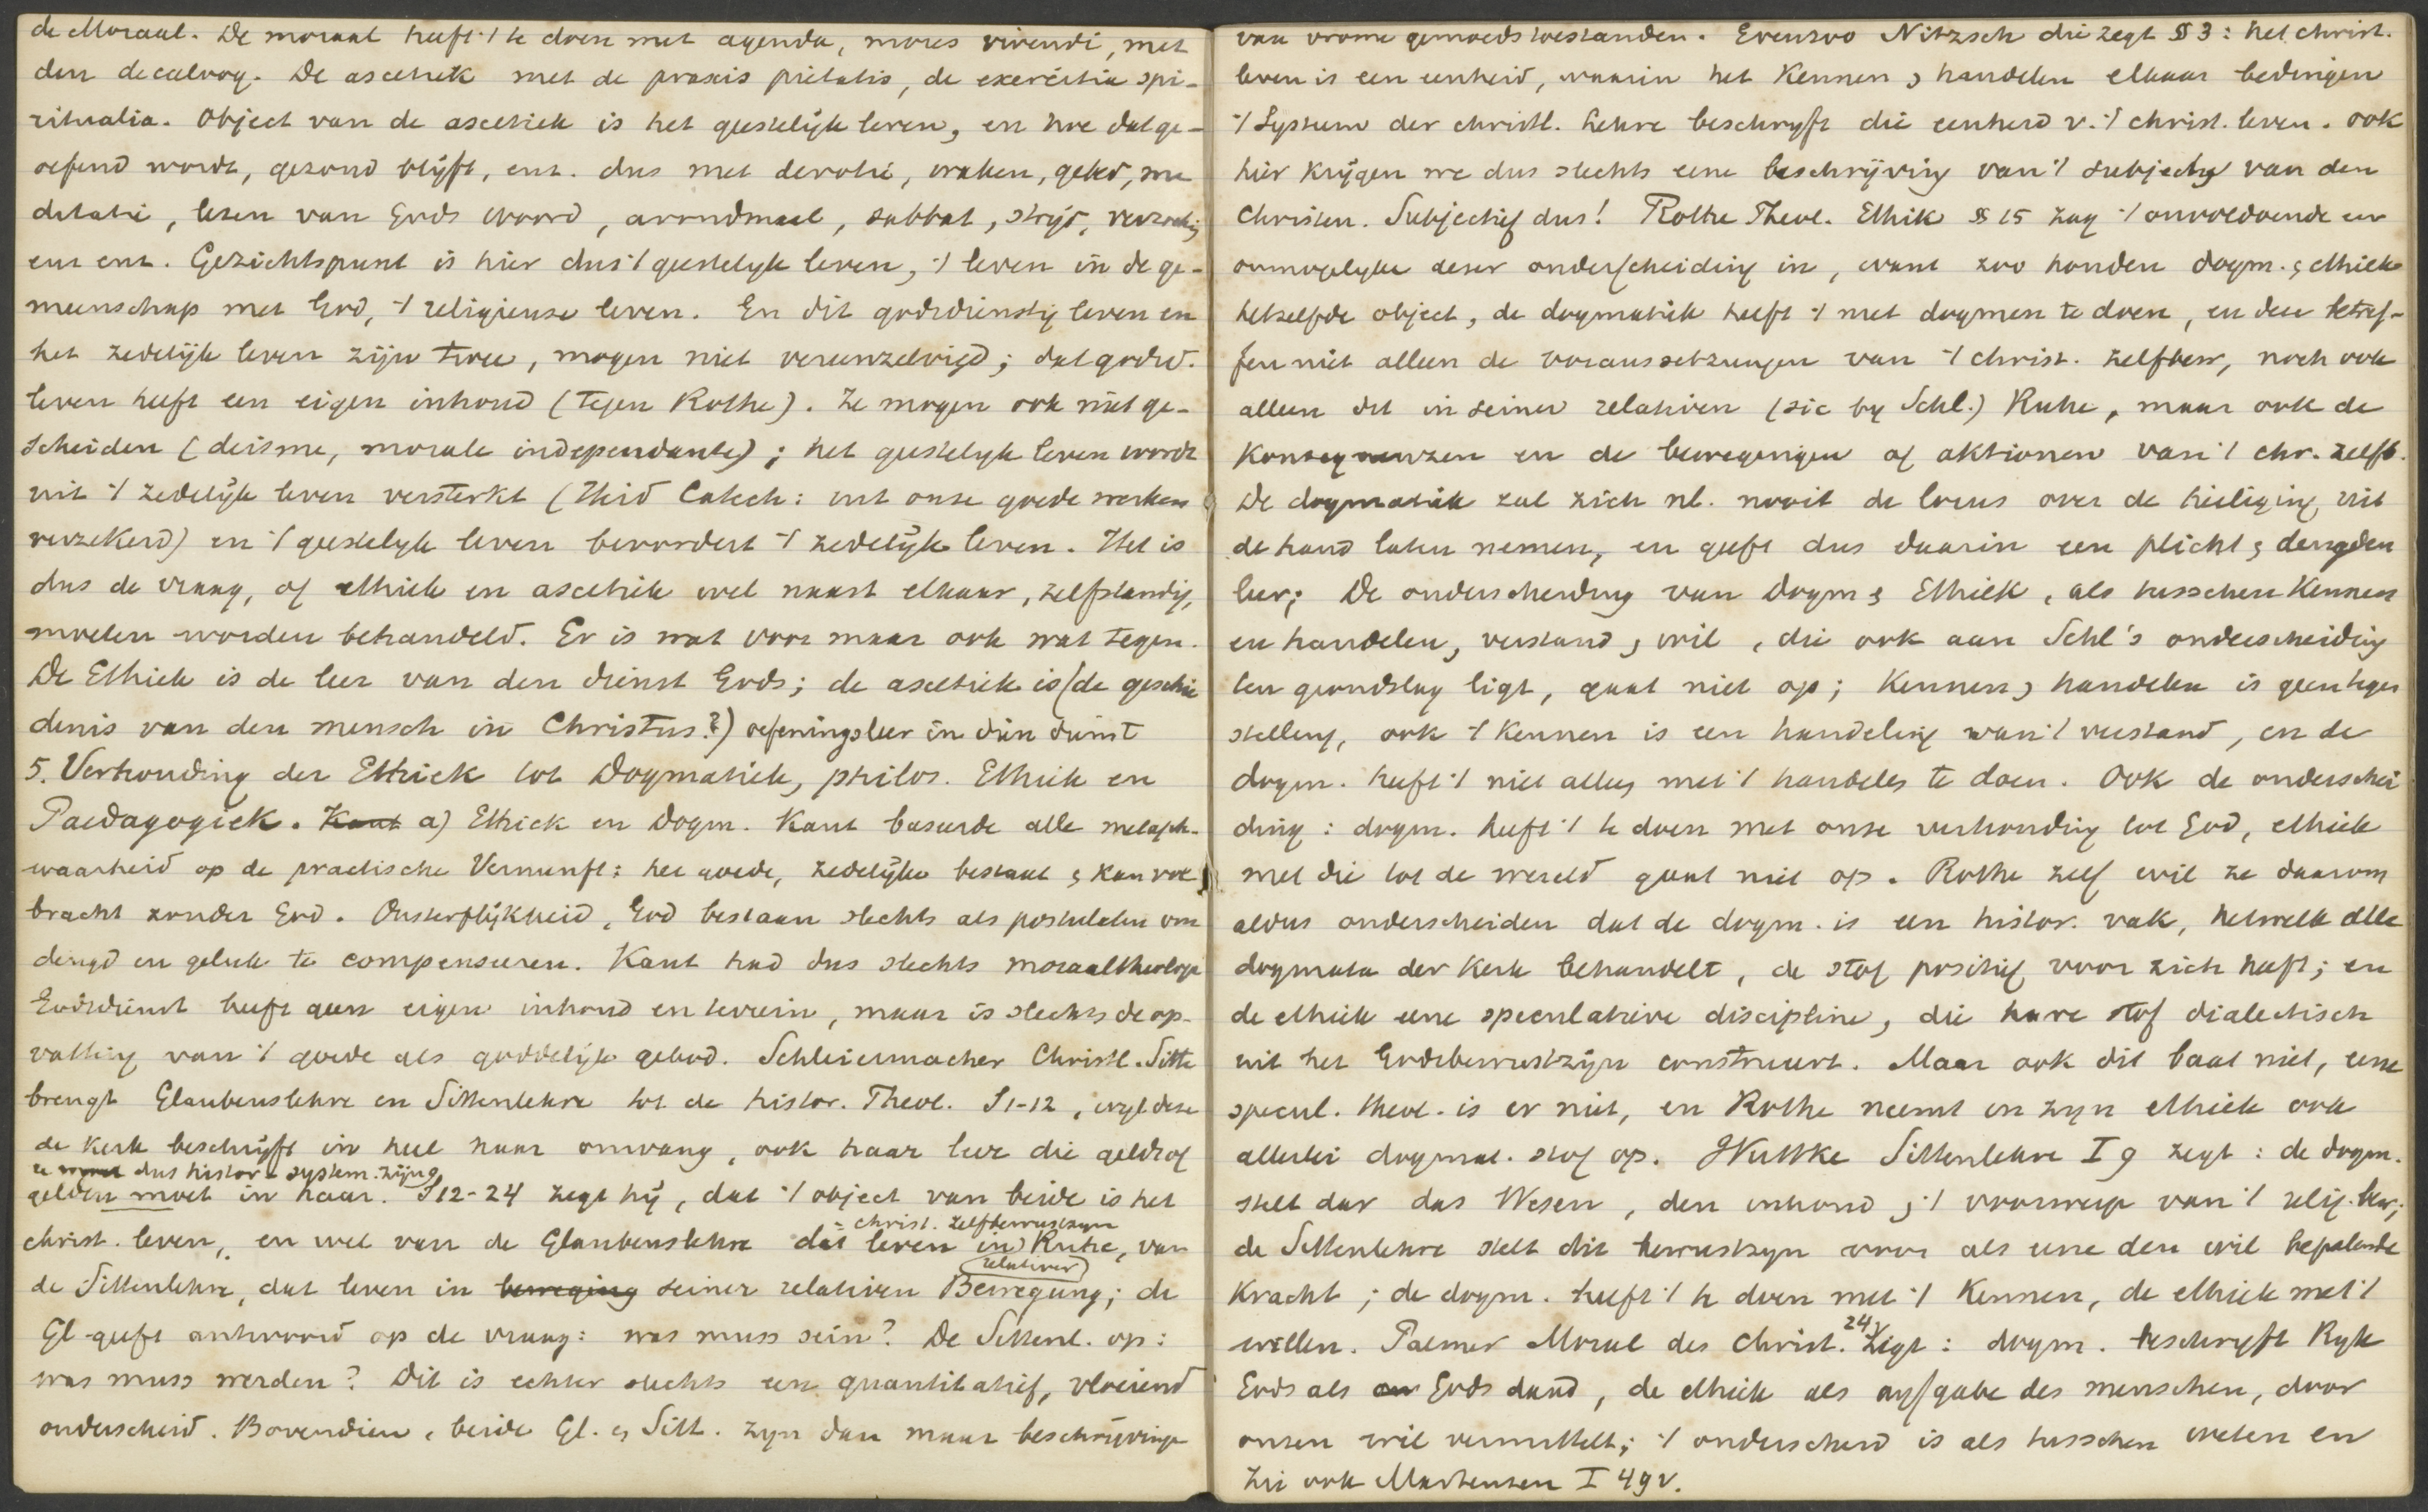 de Moraal. De moraal heeft 't te doen met agenda, mores vivendi, met
den decaloog. De ascetiek met de praxis pietatis, de exercitia spi-
ritualia. Object van de ascetiek is het geestelijk leven, en hoe dat ge-
oefend wordt, gezond blijft, enz. dus met devotie, waken, gebed, me
ditatie, lezen van Gods woord, avondmaal, sabbat, strijd, verzoekg
enz enz. Gezichtspunt is hier dus 't geestelyk leven, 't leven in de ge-
meenschap met God, 't religieuse leven. En dit godsdienstig leven en
het zedelijk leven zijn twee, mogen niet vereenzelvigd; dat godsd.
leven heeft een eigen inhoud (tegen Rothe). Ze mogen ook niet ge-
scheiden (deisme, morale independante); het geestelyk leven wordt
uit 't zedelijk leven versterkt (Heid Catech: uit onze goede werken
verzekerd) en 't geestelyk leven bevordert 't zedelijk leven. Het is
dus de vraag, of ethiek en ascetiek wel naast elkaar, zelfstandig,
moeten worden behandeld. Er is wat voor maar ook wat tegen.
De Ethiek is de leer van den dienst Gods; de ascetiek is (de geschie
denis van den mensch in Christus?) oefeningsleer in dien dienst
5. Verhouding der Ethiek tot Dogmatiek, philos. Ethiek en
Paedagogiek. Kant a) Ethiek en Dogm. Kant baseerde alle metaph.
waarheid op de practische Vernunft: het goede, zedelijke bestaat & kan vol
bracht zonder God. Onsterflijkheid, God bestaan slechts als postulaten om
deugd en geluk te compenseeren. Kant had dus slechts moraaltheologie
Godsdienst heeft geen eigen inhoud en terrein, maar is slechts de op-
vatting van 't goede als goddelijk gebod. Schleiermacher Christl. Sitte
brengt Glaubenslehre en Sittenlehre tot de histor. Theol. S 1-12, wyl deze
de kerk beschrijft in heel haar omvang, ook haar leer die geldt of
dus histor & system. zijn
gelden moet in haar. S 12-24 zegt hij, dat 't object van beide is het
= christ. zelfbewustzyn
christ. leven, en wel van de Glaubenslehre dat leven in Ruhe, van
relativer
de Sittenlehre, dat leven in beweging seiner relativen Bewegung; de
Gl. geeft antwoord op de vraag: was muss sein? De Sittenl. op:
was muss werden? Dit is echter slechts een quantitatief, vloeiend
onderscheid. Bovendien, beide Gl. & Sitt. zyn dan maar beschrijvinge
van vrome gemoedstoestanden. Evenzoo Nitzsch die zegt § 3: het christ.
leven is een eenheid, waarin het Kennen & handelen elkaar bedingen
't System der christl. Lehre beschryft die eenheid v. 't christ. leven. Ook
hier krijgen we dus slechts eene beschrijving van 't subject of van den
Christen. Subjectief dus! Rothe Theol. Ethik § 15 zag 't onvoldoende en
onmogelyke dezer onderscheiding in, want zoo houden dogm. & ethiek
hetzelfde object, de dogmatiek heeft 't met dogmen te doen, en deze betref-
fen niet alleen de voraussetzungen van 't christ. zelfbew, noch ook
alleen dit in seiner relativen (sic by Schl.) Ruhe, maar ook de
Konsequenzen en de bewegingen of aktionen van 't chr. zelfb.
De dogmatiek zal zich nl. nooit de locus over de heiliging uit
de hand laten nemen, en geeft dus daarin een plicht & deugden
leer; De onderscheiding van Dogm & Ethiek, als tusschen Kennen
en handelen, verstand & wil, die ook aan Schl's onderscheiding
ten grondslag ligt, gaat niet op; Kennen & handelen is geen tegen
stelling, ook 't Kennen is een handeling van 't verstand, en de
dogm. heeft 't niet alleen met 't handelen te doen. Ook de onderschei
ding: dogm. heeft 't te doen met onze verhouding tot God, ethiek
met die tot de wereld gaat niet op. Rothe zelf wil ze daarom
aldus onderscheiden dat de dogm. is een histor. vak, hetwelk alle
dogmata der Kerk behandelt, de stof positief voor zich heeft; en
de ethiek eene speculatieve discipline, die hare stof dialectisch
uit het Godsbewustzijn construeert. Maar ook dit baat niet, eene
specul. theol. is er niet, en Rothe neemt in zyn ethiek ook
allerlei dogmat. stof op. Wuttke Sittenlehre I 9 zegt: de dogm.
stelt dar das Wesen, den inhoud & 't voorwerp van 't relig. bew;
de Sittenlehre stelt dit bewustzyn voor als eene den wil bepalende
Kracht; de dogm. heeft 't te doen met 't Kennen, de ethiek met 't
willen. Palmer Moral des Christ. 24v zegt: dogm. beschryft Ryk
Gods als Gods daad, de ethiek als aufgabe des menschen, door
onzen wil vermittelt; 't onderscheid is als tusschen weten en
Zie ook Martensen I 49v.